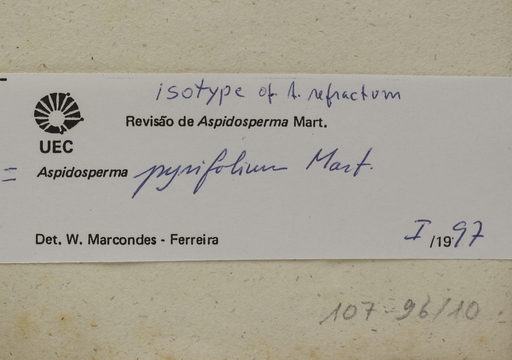 isotype of A. refractum
Revisão de Aspidosperma Mart.
UEC
= Aspidosperma pyrifolium Mart.
Det. W. Marcondes - Ferreira I /1997
107-96/10